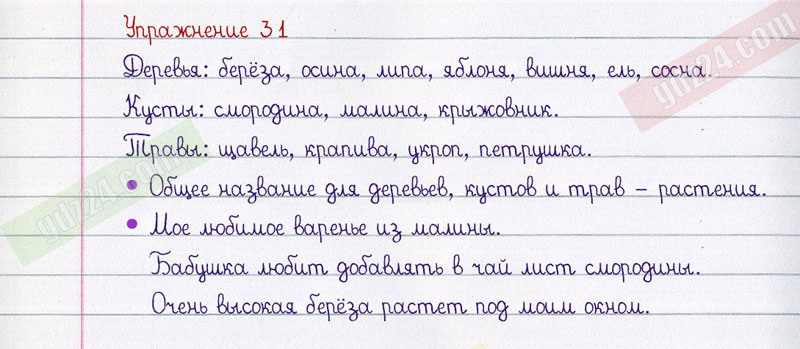 Упражнение 31
Деревья: берёза, осина, липа, яблоня, вишня, ель, сосна.
Кусты: смородина, малина, крыжовник.
Травы: щавель, крапива, укроп, петрушка.
• Общее название для деревьев, кустов и трав – растения.
• Мое любимое варенье из малины.
Бабушка любит добавлять в чай лист смородины.
Очень высокая берёза растет под моим окном.
gdz24.com
gdz24.com